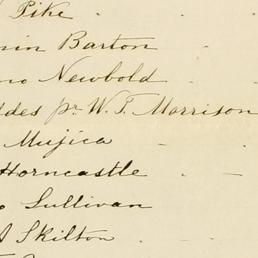 Pike
min Barton
no Newbold
ldes pr W. T. Morrison
Mujica
Horncastle
o Sullivan
A Skilton